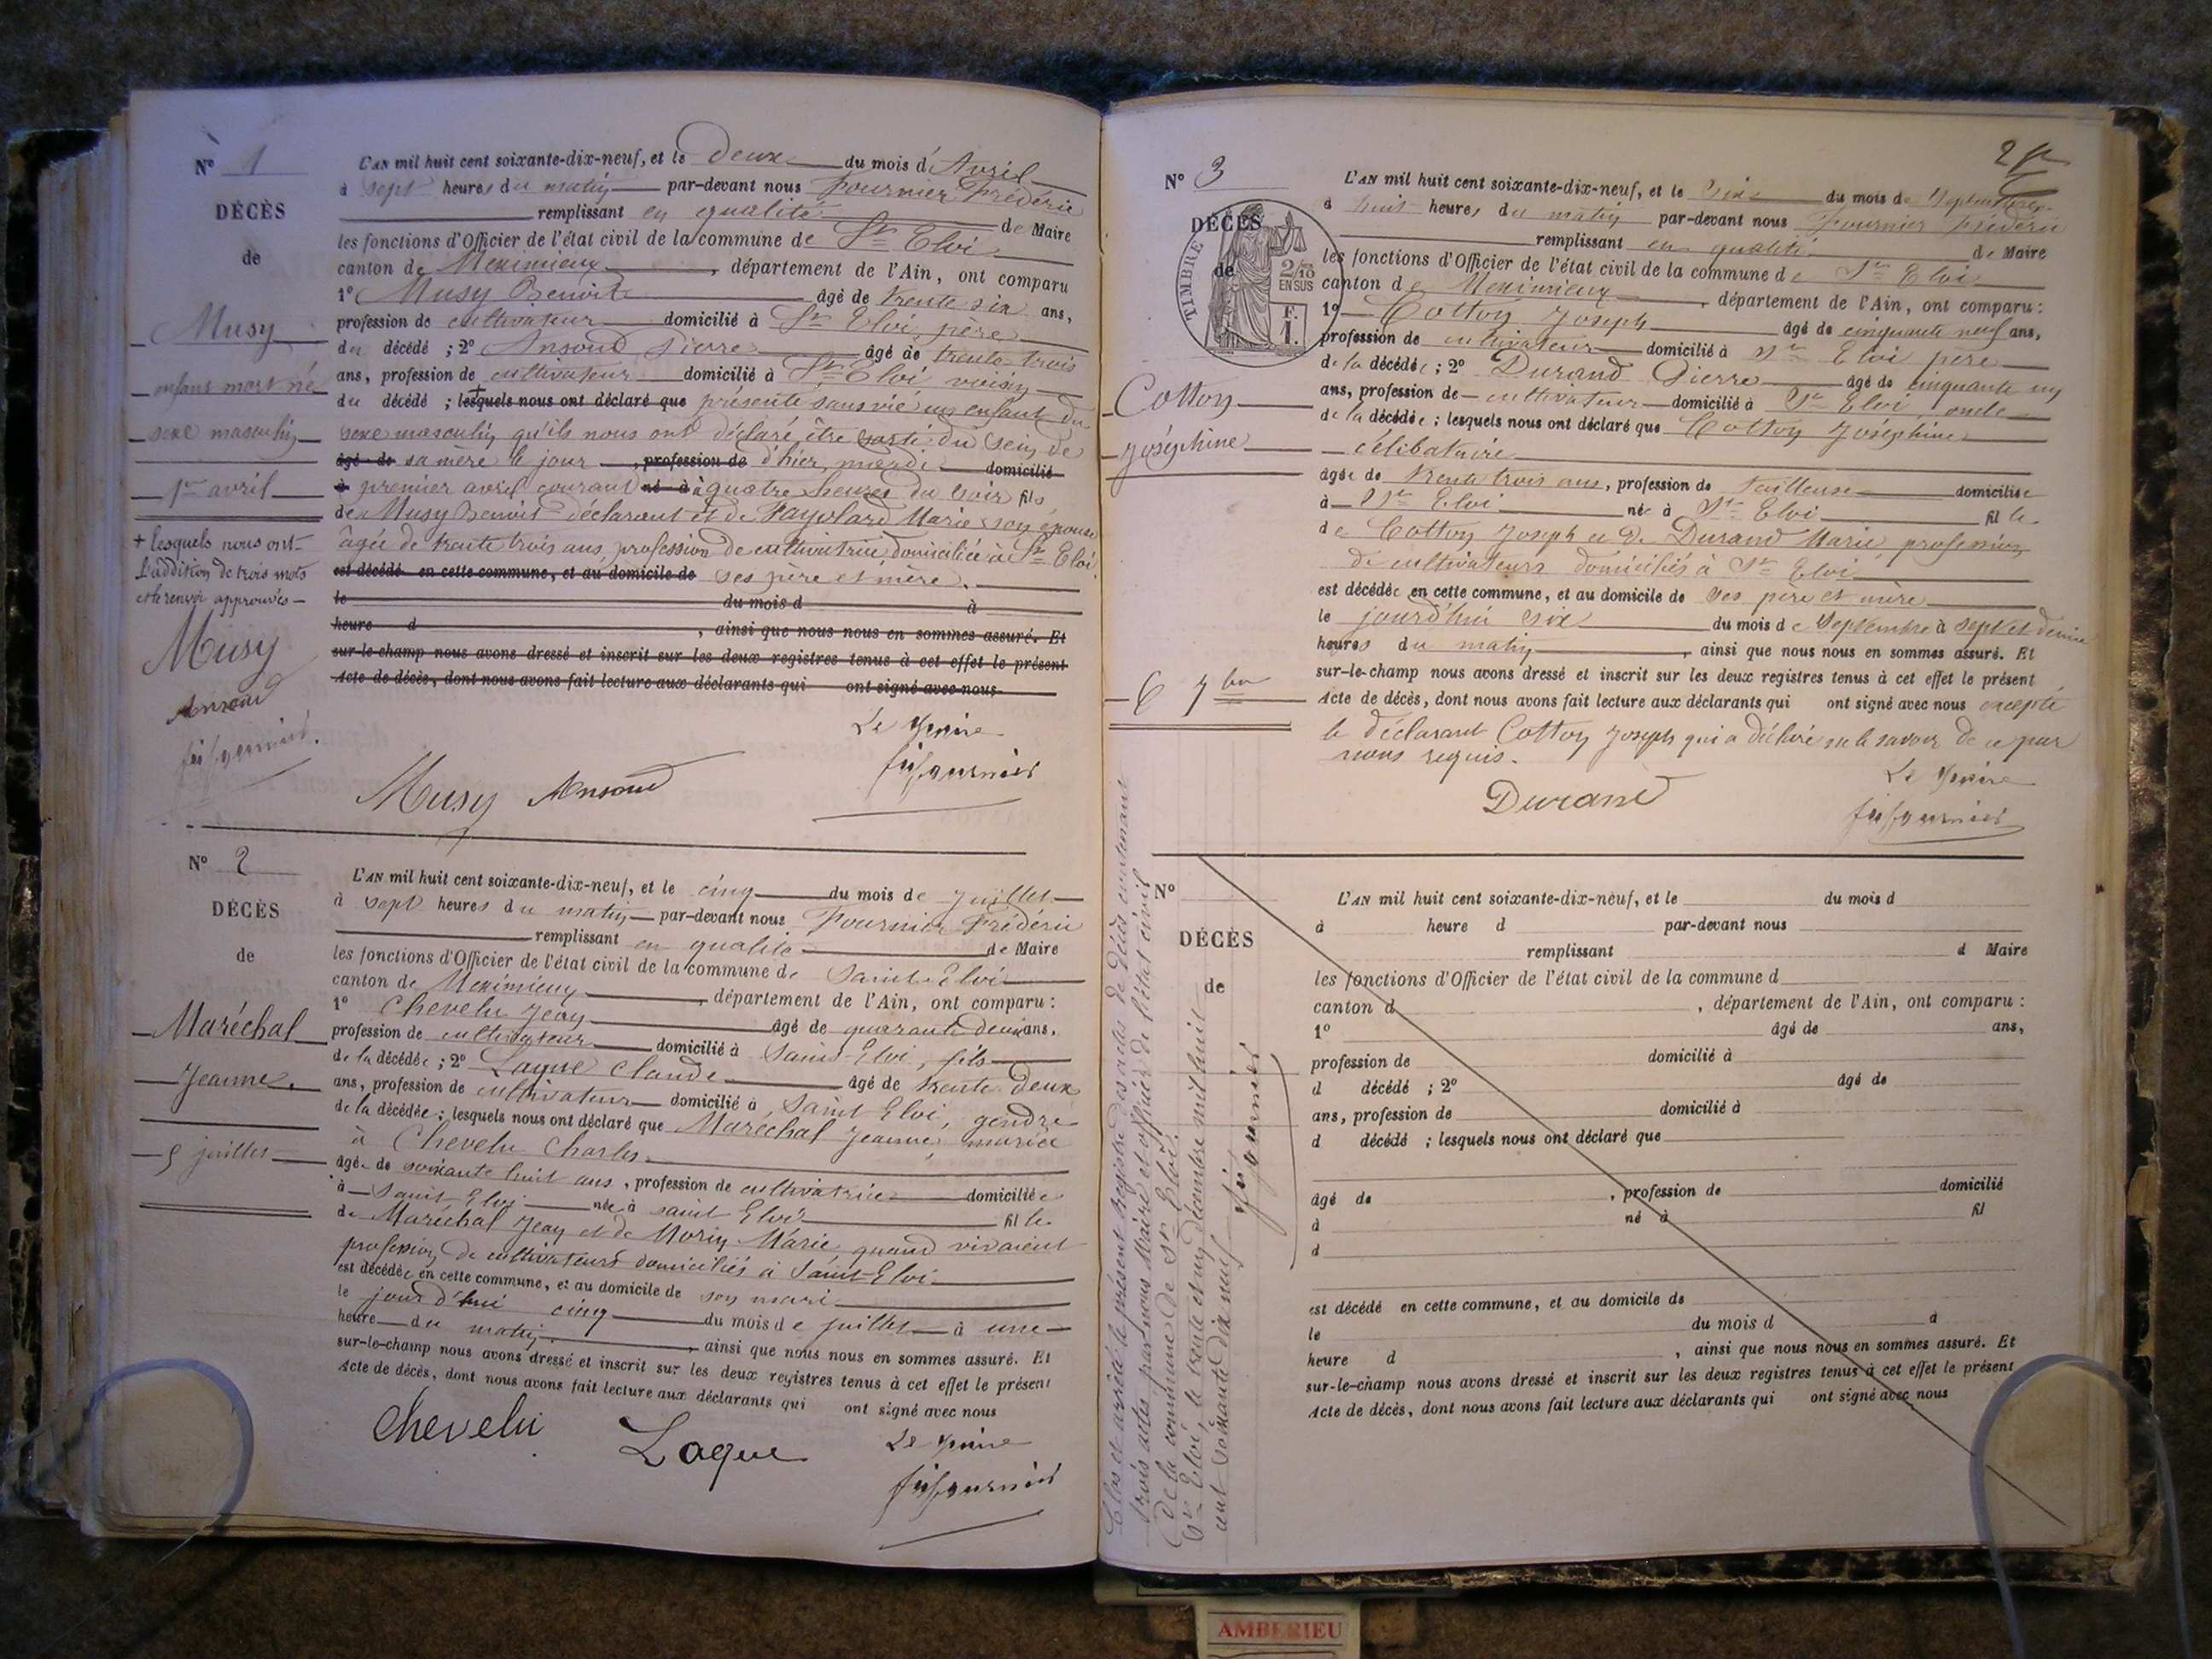 N° 1
DÉCÈS
de
Musy
enfant mort né
sexe masculin
1er avril
+ lesquels nous ont
L'addition de trois mots
et le renvoi approuvés
Musy
Ansoud
L'AN mil huit cent soixante-dix-neuf, et le deux du mois d'Avril
à sept heures du matin par-devant nous Fournier Frédéric
remplissant en qualité de Maire
les fonctions d'Officier de l'état civil de la commune de St Eloi
canton de Meximieux, département de l'Ain, ont comparu
1° Musy Benoit âgé de trente six ans,
profession de cultivateur domicilié à St Eloi père
du décédé ; 2° Ansoud Pierre âgé de trente trois
ans, profession de cultivateur domicilié à St Eloi voisin
du décédé ; + lesquels nous ont déclaré que présenté sans vie un enfant du
sexe masculin qu'ils nous ont déclaré être sorti du sein de
âgé de sa mère le jour , profession de d'hier, mardi domicilié
à premier avril courant né à à quatre heures du soir fils
de Musy Benoit déclarant et de Marie son épouse
âgée de trente trois ans, profession de cultivatrice domiciliée à St Eloi
est décédé en cette commune, et au domicile de ses père et mère.
le du mois d à
heure d , ainsi que nous nous en sommes assuré. Et
sur-le-champ nous avons dressé et inscrit sur les deux registres tenus à cet effet le présent
Acte de décès, dont nous avons fait lecture aux déclarants qui ont signé avec nous
Le Maire
Musy Ansoud
N° 2
DÉCÈS
de
Maréchal
Jeanne
5 juillet
L'AN mil huit cent soixante-dix-neuf, et le cinq du mois de Juillet
à sept heures du matin par-devant nous Fournier Frédéric
remplissant en qualité de Maire
les fonctions d'Officier de l'état civil de la commune de Saint Eloi
canton de Meximieux, département de l'Ain, ont comparu :
1° Chevelu Jean âgé de quarante deux ans,
profession de cultivateur domicilié à Saint-Eloi, fils
de la décédée ; 2° Laque Claude âgé de trente deux
ans, profession de cultivateur domicilié à Saint Eloi, gendre
de la décédée ; lesquels nous ont déclaré que Maréchal Jeanne, mariée
à Chevelu Charles
âgée de soixante huit ans, profession de cultivatrice domiciliée
à Saint Eloi née à saint Eloi fille
de Maréchal Jean et de Morin Marie, quand vivaient
profession de cultivateurs domiciliés à Saint-Eloi
est décédée en cette commune, et au domicile de son mari
le jourd'hui cinq du mois de juillet à une
heure du matin, ainsi que nous nous en sommes assuré. Et
sur-le-champ nous avons dressé et inscrit sur les deux registres tenus à cet effet le présent
Acte de décès, dont nous avons fait lecture aux déclarants qui ont signé avec nous
Chevelu Laque Le Maire
N° 3
DÉCÈS
de
TIMBRE
2/10 EN SUS
F. 1.
Cotton
Joséphine
6 7bre
L'AN mil huit cent soixante-dix-neuf, et le six du mois de Septembre
à huit heures du matin par-devant nous Fournier Frédéric
remplissant en qualité de Maire
les fonctions d'Officier de l'état civil de la commune de St Eloi
canton de Meximieux, département de l'Ain, ont comparu :
1° Cotton Joseph âgé de cinquante neuf ans,
profession de cultivateur domicilié à St Eloi père
de la décédée ; 2° Durand Pierre âgé de cinquante un
ans, profession de cultivateur domicilié à St Eloi, oncle
de la décédée ; lesquels nous ont déclaré que Cotton Joséphine
célibataire
âgée de trente trois ans, profession de tailleuse domiciliée
à St Eloi née à St Eloi fille
de Cotton Joseph et de Durand Marie, profession
de cultivateurs domiciliés à St Eloi
est décédée en cette commune, et au domicile de ses père et mère
le jourd'hui six du mois de Septembre à sept et demie
heures du matin, ainsi que nous nous en sommes assuré. Et
sur-le-champ nous avons dressé et inscrit sur les deux registres tenus à cet effet le présent
Acte de décès, dont nous avons fait lecture aux déclarants qui ont signé avec nous excepté
le déclarant Cotton Joseph qui a déclaré ne le savoir de ce par
nous requis.
Durand
Le Maire
Clos et arrêté le présent registre des actes de décès contenant
trois actes par nous Maire et officier de l'état civil
de la commune de St Eloi.
St Eloi, le trente et un décembre mil huit
cent soixante dix neuf
N°
DÉCÈS
de
L'AN mil huit cent soixante-dix-neuf, et le du mois d
à heure d par-devant nous
remplissant d Maire
les fonctions d'Officier de l'état civil de la commune d
canton d , département de l'Ain, ont comparu :
1° âgé de ans,
profession de domicilié à
d décédé ; 2° âgé de
ans, profession de domicilié à
d décédé ; lesquels nous ont déclaré que
âgé de , profession de domicilié
à né à fil
d
est décédé en cette commune, et au domicile de
le du mois d à
heure d , ainsi que nous nous en sommes assuré. Et
sur-le-champ nous avons dressé et inscrit sur les deux registres tenus à cet effet le présent
Acte de décès, dont nous avons fait lecture aux déclarants qui ont signé avec nous
AMBERIEU